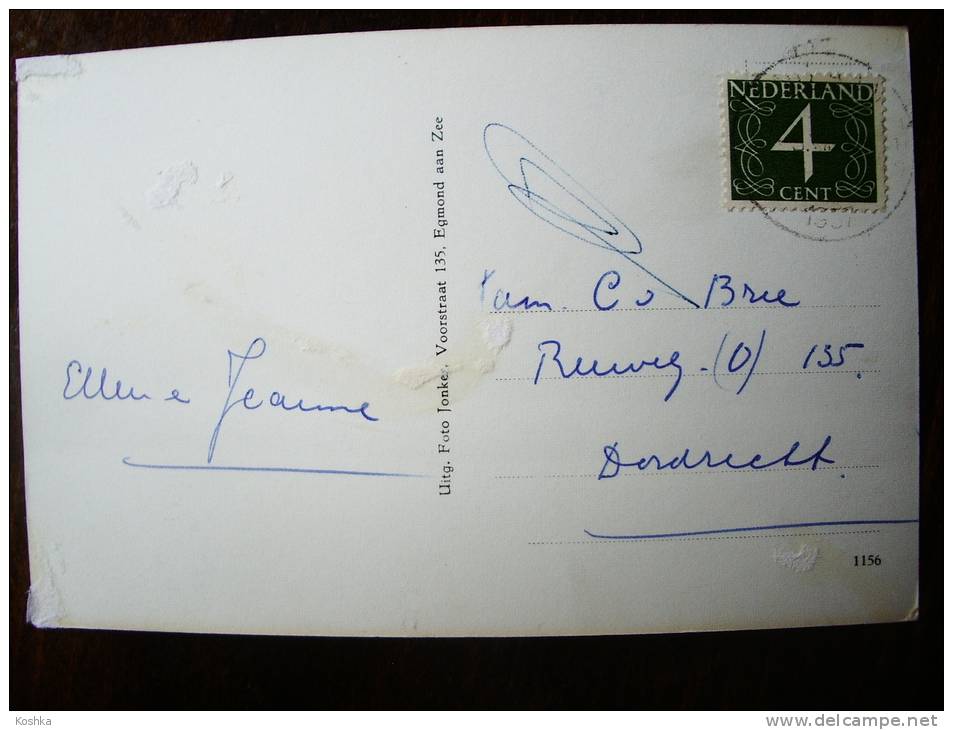 NEDERLAND
4
CENT
Uitg. Foto Jonker, Voorstraat 135, Egmond aan Zee
Fam. Co Brie
(O) 135.
Dordrecht.
Ellen e Jeanne
1156
Koshka
www.delcampe.net